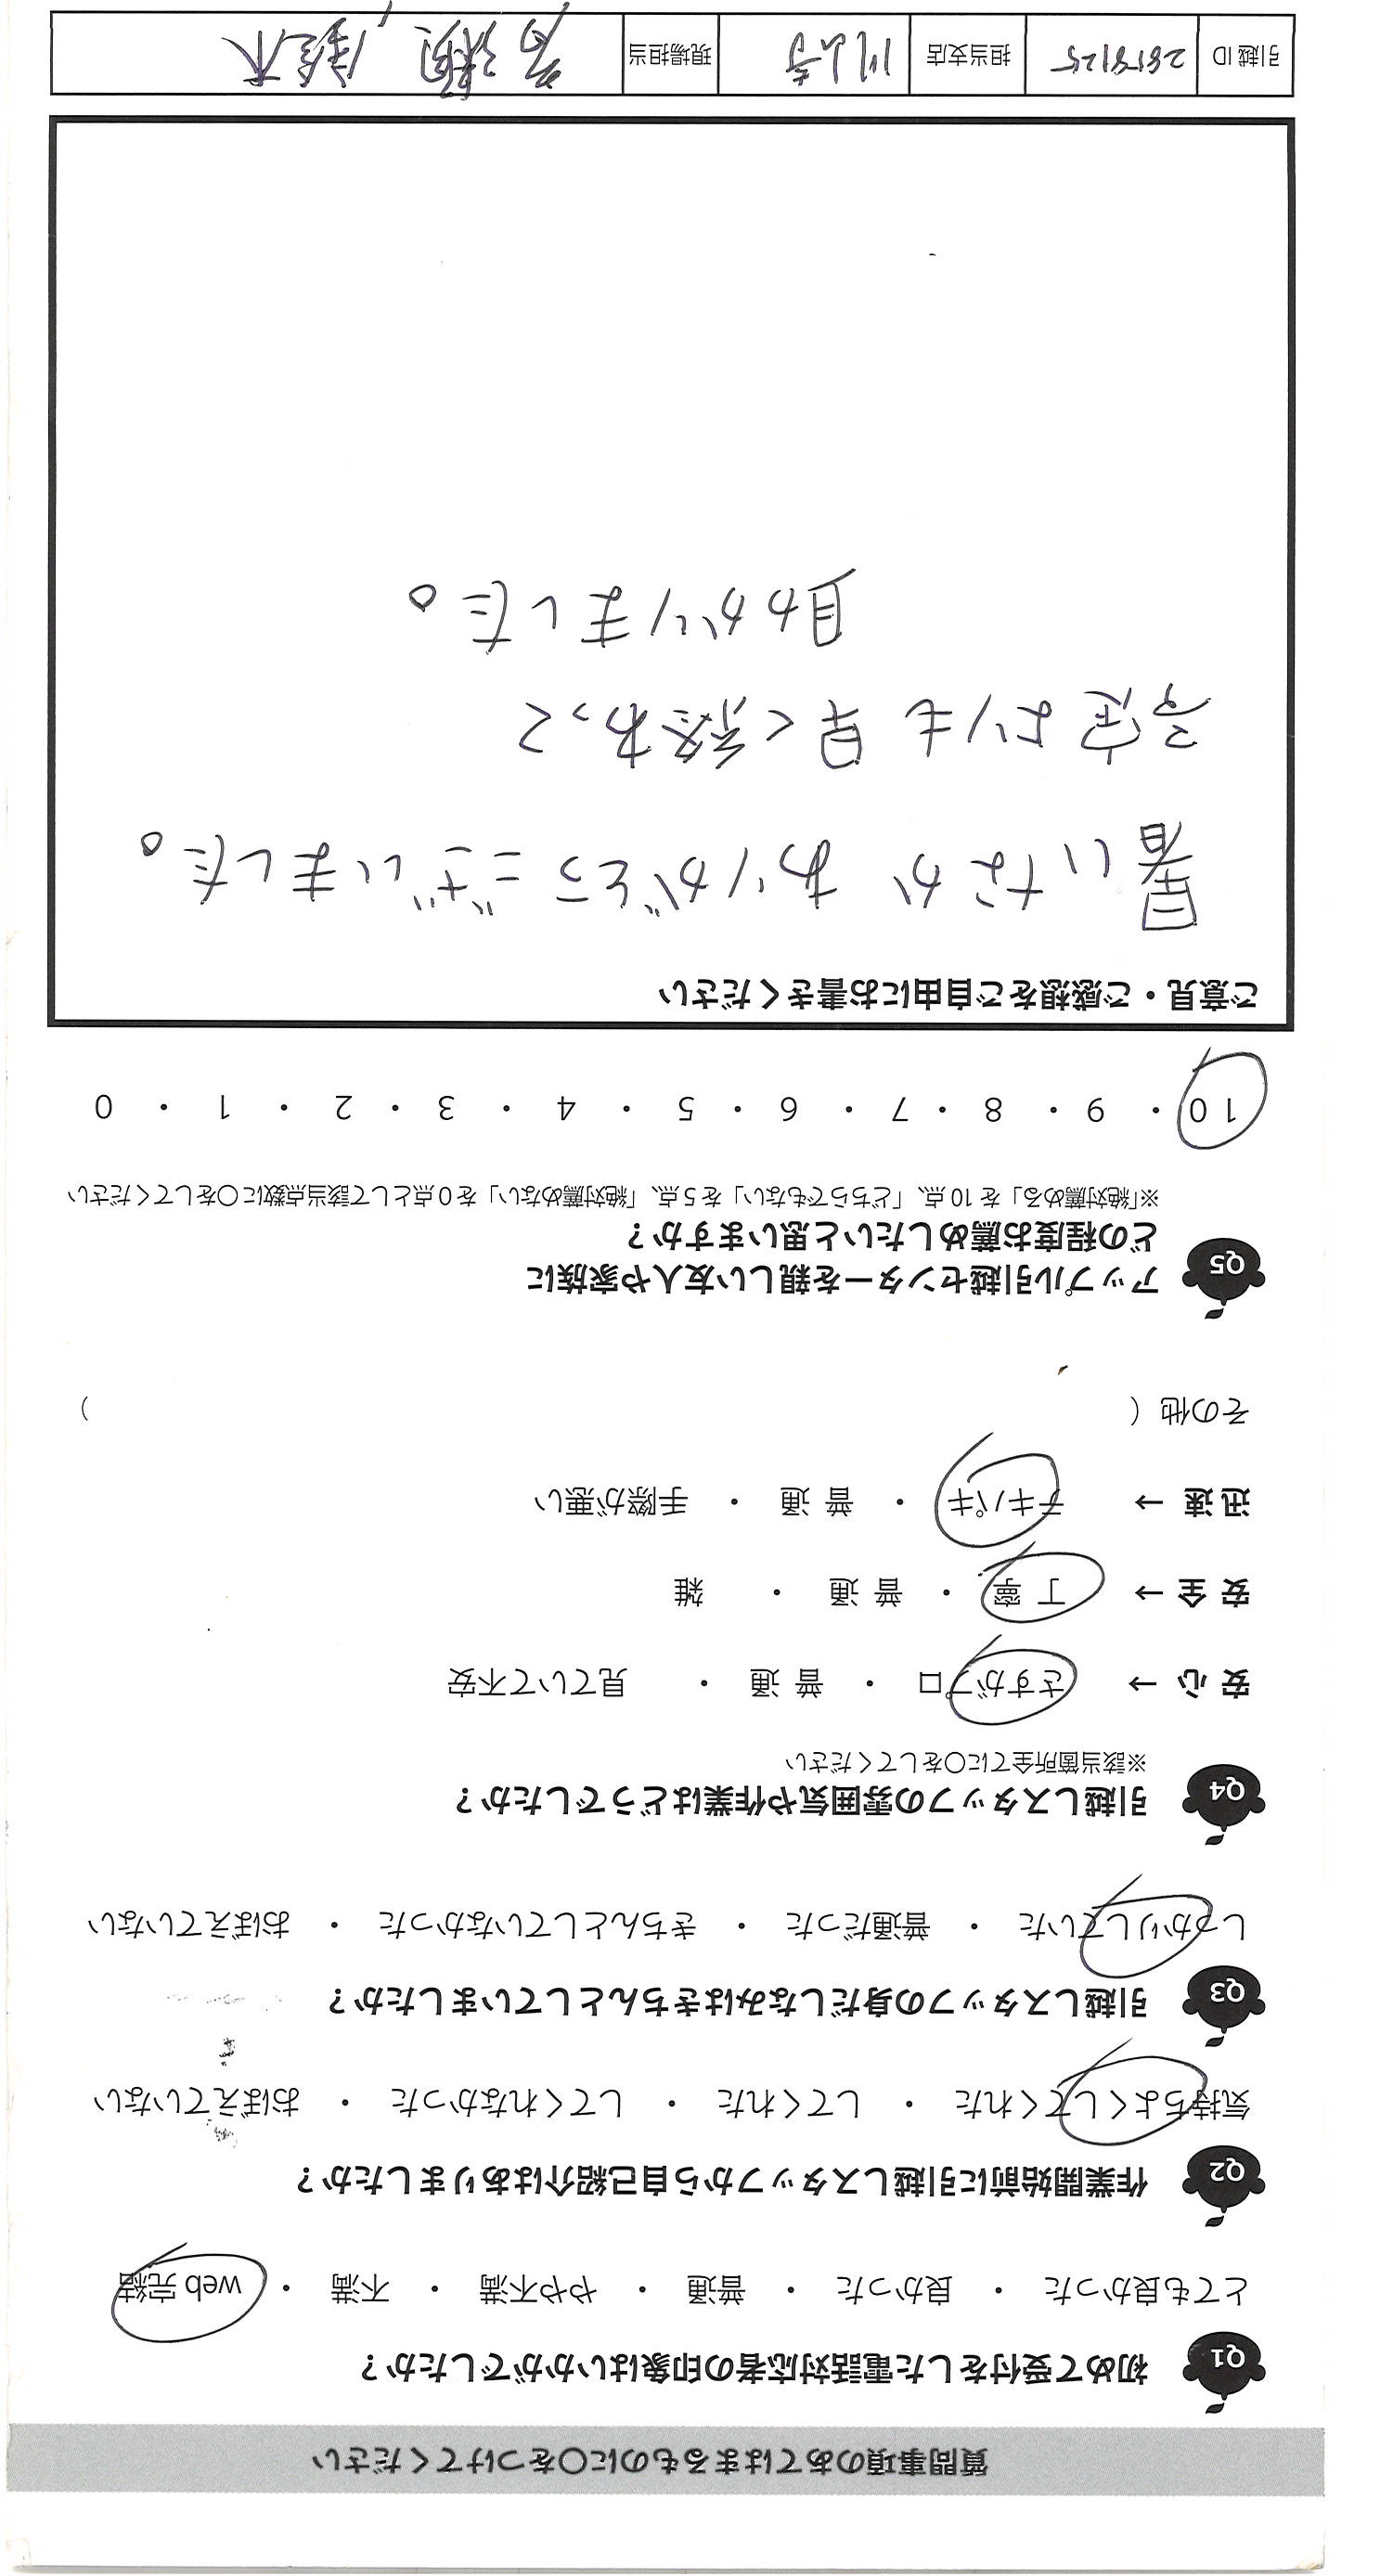 質問事項のあてはまるものに○をつけてください
Q1 初めて受付をした電話対応者の印象はいかがでしたか？
とても良かった ・ 良かった ・ 普通 ・ やや不満 ・ 不満 ・ web 完結
Q2 作業開始前に引越しスタッフから自己紹介はありましたか？
気持ちよくしてくれた ・ してくれた ・ してくれなかった ・ おぼえていない
Q3 引越しスタッフの身だしなみはきちんとしていましたか？
しっかりしていた ・ 普通だった ・ きちんとしていなかった ・ おぼえていない
Q4 引越しスタッフの雰囲気や作業はどうでしたか？
※該当箇所全てに○をしてください
安 心 → さすがプロ ・ 普 通 ・ 見ていて不安
安 全 → 丁 寧 ・ 普 通 ・ 雑
迅 速 → テキパキ ・ 普 通 ・ 手際が悪い
その他（ ）
Q5 アップル引越センターを親しい友人や家族に
どの程度お薦めしたいと思いますか？
※「絶対薦める」を 10 点、「どちらでもない」を 5 点、「絶対薦めない」を 0 点として該当点数に○をしてください
10 ・ 9 ・ 8 ・ 7 ・ 6 ・ 5 ・ 4 ・ 3 ・ 2 ・ 1 ・ 0
ご意見・ご感想をご自由にお書きください
暑いなか ありがとうございました。
予定よりも 早く終わって
助かりました。
引越 ID 2818125 担当支店 川山寺 現場担当 高瀬, 鈴木